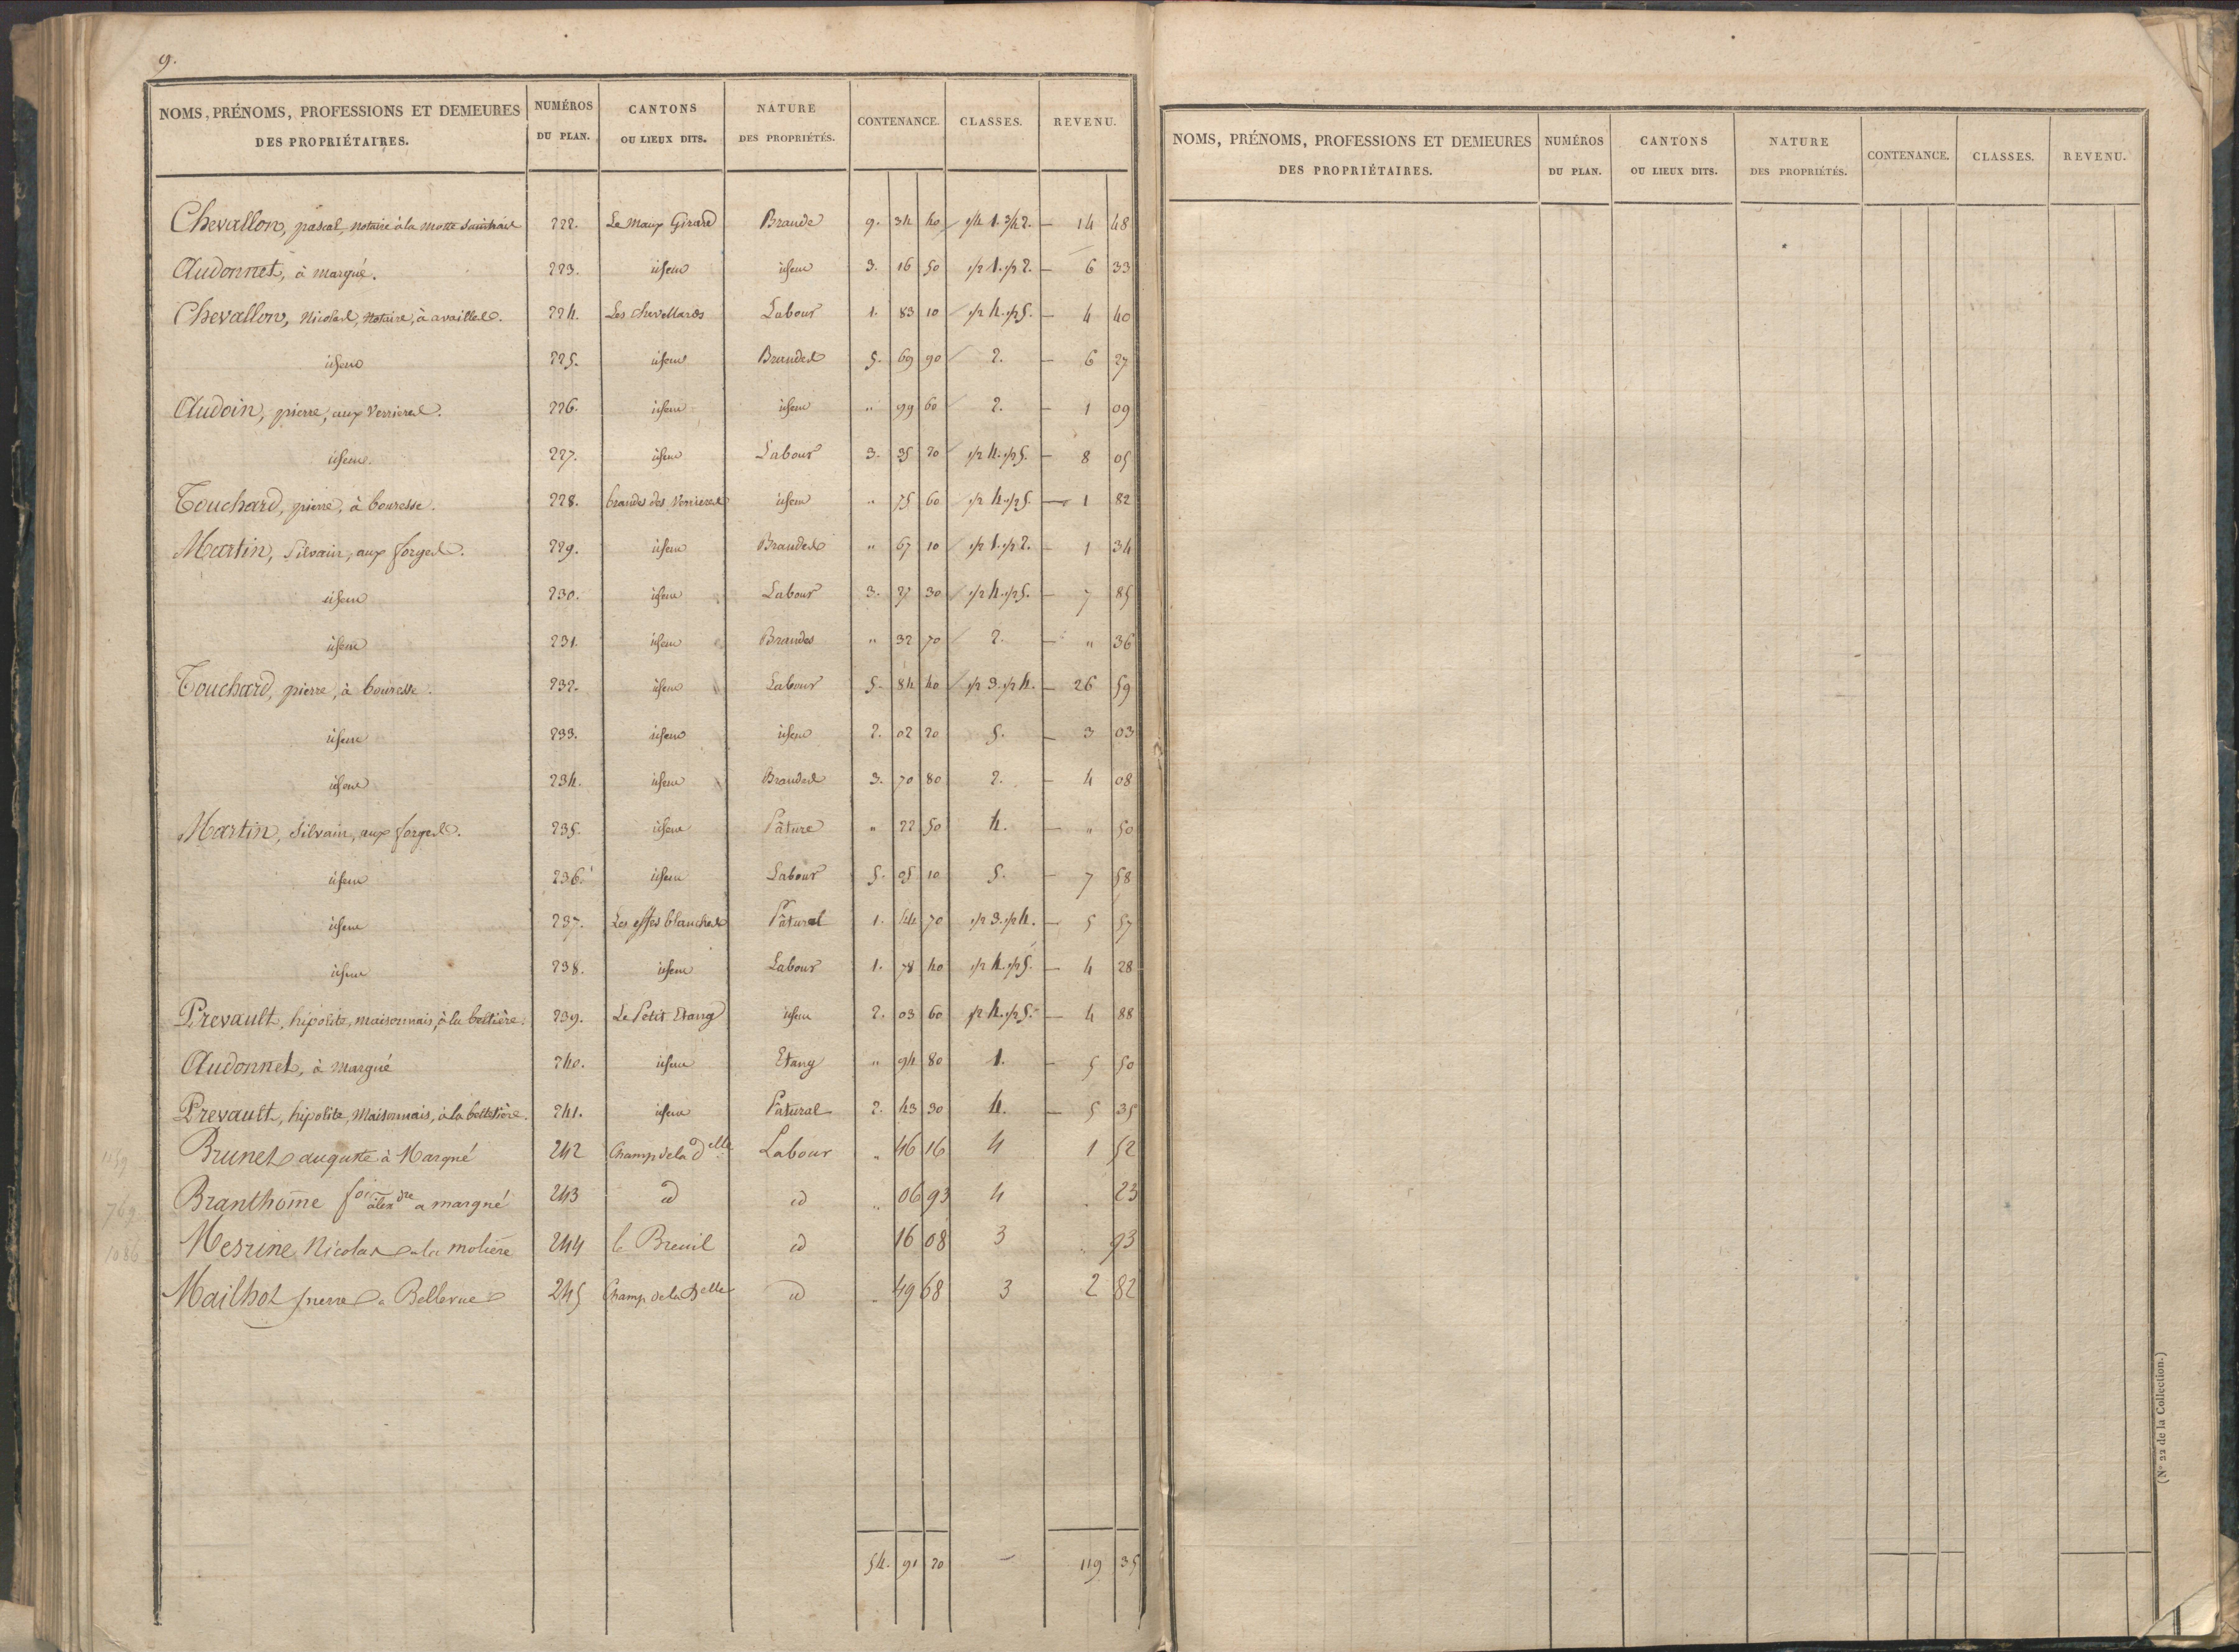 9.
NOMS, PRÉNOMS, PROFESSIONS ET DEMEURES DES PROPRIÉTAIRES. NUMÉROS DU PLAN. CANTONS OU LIEUX DITS. NATURE DES PROPRIÉTÉS. CONTENANCE. CLASSES. REVENU.
Chevallon, pascal, notaire à la motte 222. Le Maux Girard Brande 9. 34 40 1/4 1. 3/4 2. 14 48
Audonnet, à margné. 223. idem idem 3. 16 50 1/2 1. 1/2 2. 6 33
Chevallon, Nicolas, Notaire, à availles. 224. Les Labour 1. 83 10 1/2 4. 1/2 5. 4 40
idem 225. idem Brandes 5. 69 90 2. 6 27
Audoin, pierre, aux Verrieres. 226. idem idem " 99 60 2. 1 09
idem. 227. idem Labour 3. 35 20 1/2 4. 1/2 5. 8 05
Touchard, pierre, à bouresse. 228. brandes des Verrieres idem " 75 60 1/2 4. 1/2 5. 1 82
Martin, Silvain, aux forges. 229. idem Brandes " 67 10 1/2 1. 1/2 2. 1 34
idem 230. idem Labour 3. 27 30 1/2 4. 1/2 5. 7 85
idem 231. idem Brandes " 32 70 2. " 36
Touchard, pierre, à bouresse. 232. idem Labour 5. 84 40 1/2 3. 1/2 4. 26 59
idem 233. idem idem 2. 02 20 5. 3 03
idem 234. idem Brandes 3. 70 80 2. 4 08
Martin, Silvain, aux forges. 235. idem Pâture " 22 50 4. " 50
idem 236. idem Labour 5. 05 10 5. 7 58
idem 237. Les effes blanches Pâtural 1. 44 70 1/2 3. 1/2 4. 5 57
idem 238. idem Labour 1. 78 40 1/2 4. 1/2 5. 4 28
Prevault, hipolite, maisonnais, à la 239. Le Petit Etang idem 2. 03 60 1/2 4. 1/2 5. 4 88
Audonnet, à margné 240. idem Etang " 94 80 1. 5 50
Prevault, hipolite, Maisonnais, à la 241. idem Patural 2. 43 30 4. 5 35
Brunet auguste à Margné 242 Champ de la delle Labour " 46 16 4 1 52
769 Branthome alexdre a margné 243 id id " 06 93 4 . 23
1086 Mesrine Nicolas a la moliere 244 le Breuil id 16 08 3 " 93
Mailhot pierre a Bellevue 245 Champ de la Delle id " 49 68 3 2 82
54. 91 20 — 119 35
NOMS, PRÉNOMS, PROFESSIONS ET DEMEURES DES PROPRIÉTAIRES. NUMÉROS DU PLAN. CANTONS OU LIEUX DITS. NATURE DES PROPRIÉTÉS. CONTENANCE. CLASSES. REVENU.
(N° 22 de la Collection.)